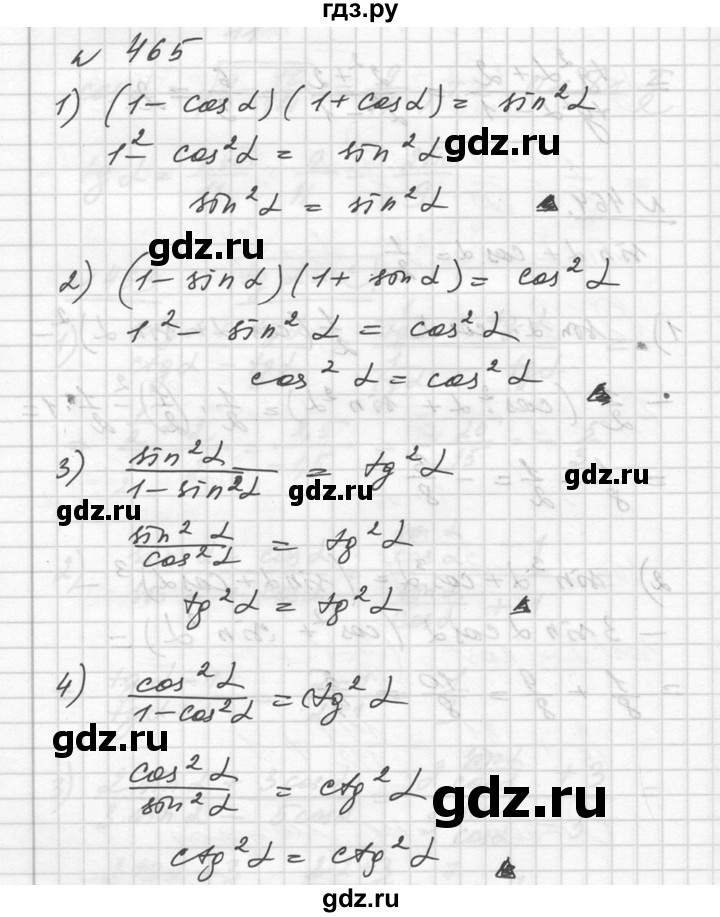 гдз.ру
№ 465
1) (1 - cos α)(1 + cos α) = sin² α
1² - cos² α = sin² α
gdz.ru
sin² α = sin² α ▲
gdz.ru
2) (1 - sin α)(1 + sin α) = cos² α
1² - sin² α = cos² α
cos² α = cos² α ▲
3) sin² α / 1 - sin² α = tg² α
gdz.ru
gdz.ru
gdz.ru
sin² α / cos² α = tg² α
tg² α = tg² α ▲
4) cos² α / 1 - cos² α = ctg² α
gdz.ru
cos² α / sin² α = ctg² α
gdz.ru
ctg² α = ctg² α ▲
gdz.ru